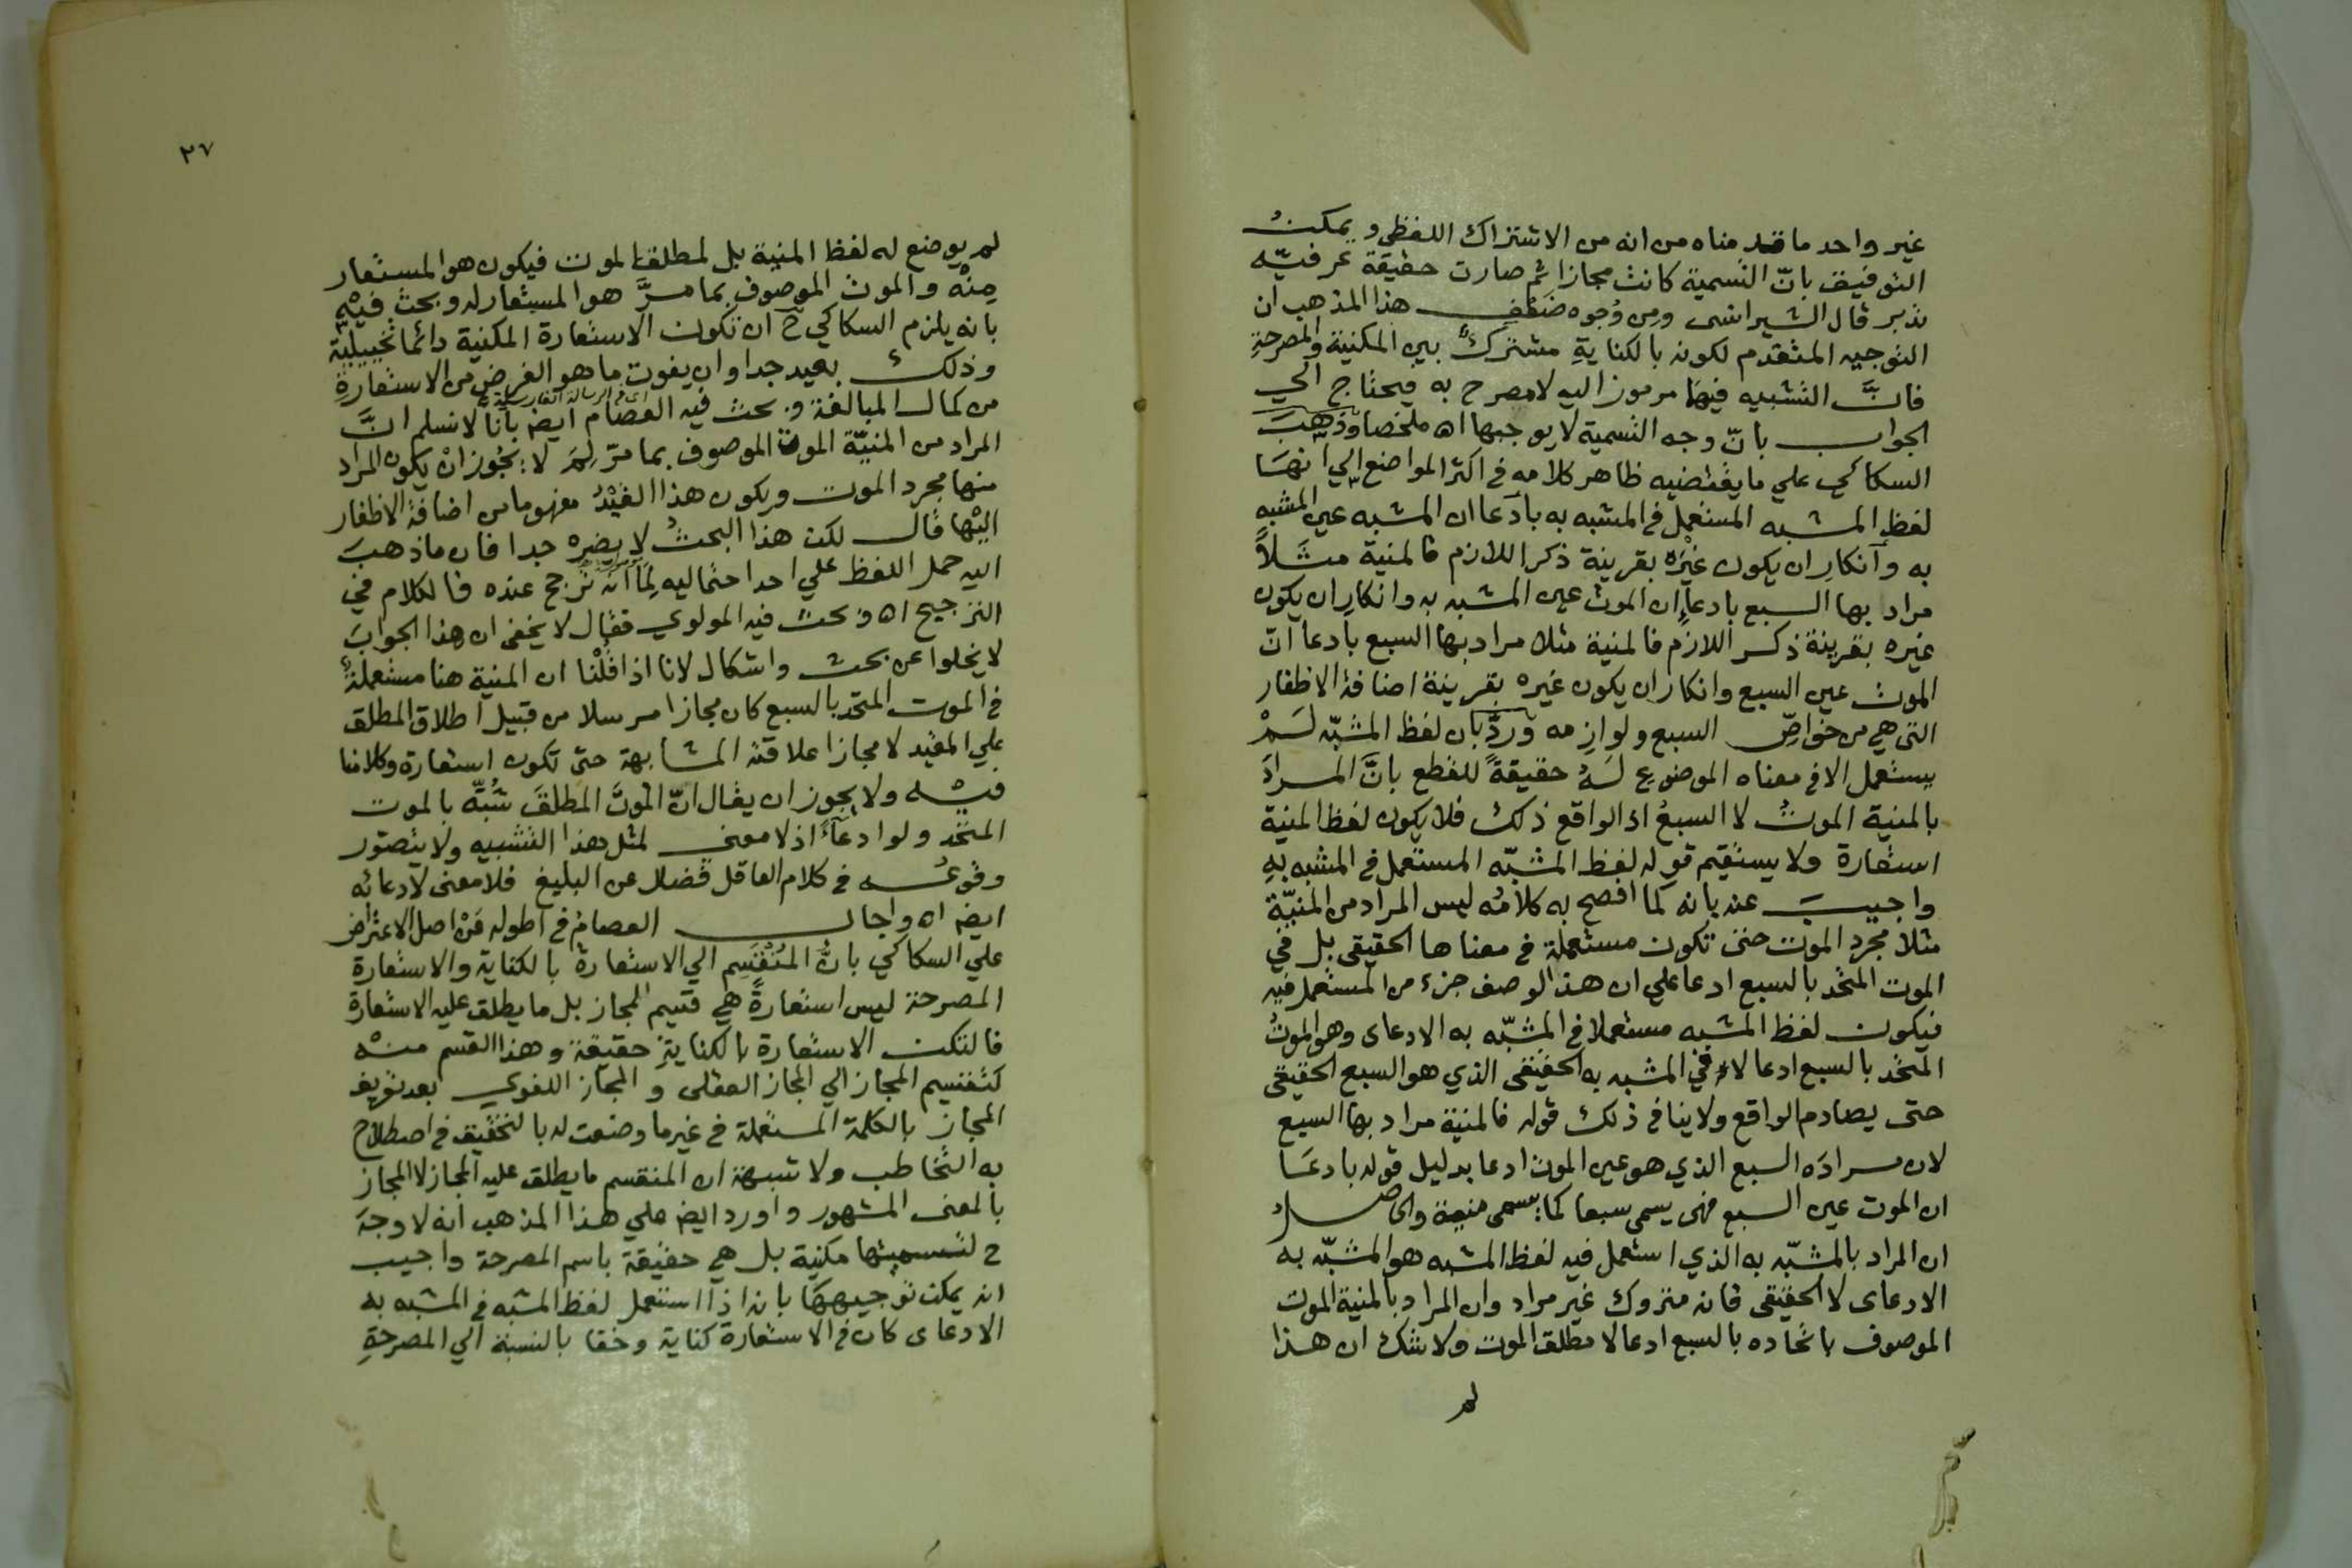 غير واحد ما قدمناه من انه من الاشتراك اللفظي ويمكن
التوفيق بانّ التسمية كانت مجازا ثم صارت حقيقة عرفيّه
تدبر قال الشيرانسى ومن وُجوه ضعْفِ هذا المذهب ان
التوجيه المتقدم لكونه بالكنايةِ مشتركٌ بين المكنية والمصرحةِ
فانَّ التشبيه فيها مرموز اليه لا مصرح به فيحتاج الي
الجواب بانّ وجه التسمية لا يوجبها اه ملخصا وذهبَ
السكاكي علي ما يقتضيه ظاهر كلامه في اكثر المواضع الي انهَا
لفظ المشبه المستعمل في المشبه به بادعا ان المشبه عين المشبه
به وانكارِ ان يكون غيْرَه بقرينة ذكر اللازم فالمنية مثَلاً
مراد بها السبع بادعاءِ ان الموت عين المشبه به وانكارِ ان يكون
غيره بقرينة ذكر اللازم فالمنية مثلا مراد بها السبع بادعا انّ
الموت عين السبع وانكار ان يكون غيره بقرينة اضافة الاظفار
التى هي من خواصِّ السبع ولوازمه ورُدَّ بان لفظ المشبّه لَمْ
يستعمل الا في معناه الموضوع لَهُ حقيقةً للقطع بانَّ المرادَ
بالمنية الموتُ لا السبعُ اذ الواقع ذلك فلا يكون لفظ المنية
استعارة ولا يستقيم قوله لفظ المشبّه المستعمل في المشبه بهِ
واجيبَ عنه بانه كما افصح به كلامُه ليس المراد من المنيّة
مثلا مجرد الموت حتى تكون مستعملة في معناها الحقيقى بل في
الموت المتحد بالسبع ادعا علي ان هذا الوصف جزء من المستعمل فيه
فيكون لفظ المشبه مستعملا في المشبّه به الادعاى وهو الموتُ
المتحد بالسبع ادعا لا في المشبه به الحقيقى الذي هو السبع الحقيقى
حتى يصادم الواقع ولا ينافى ذلك قوله فالمنية مراد بها السبع
لان مرادَه السبع الذي هو عين الموت ادعا بدليل قوله بادعَا
ان الموت عين السبع فهى يسمى سبعا كما يسمى منية والحاصل
ان المراد بالمشبّه به الذي استعمل فيه لفظ المشبه هو المشبّه به
الادعاى لا الحقيقى فانه متروك غير مراد وان المراد بالمنية الموت
الموصوف باتحاده بالسبع ادعا لا مطلق الموت ولا شك ان هذا
لم
٢٧
لم يوضع له لفظ المنية بل لمطلق الموت فيكون هو المستعار
مِنْهُ والموت الموصوف بما مرَّ هو المستعار له وبحث فيْهِ
بانه يلزم السكاكي ح ان تكون الاستعارة المكنية دائما تخييلية
وذلك بعيد جدا وان يفوت ما هو الغرض من الاستعارةِ
من كمال المبالغة وبحث فيه العصام ايضا بانا لا نسلم انَّ
اى في الرسالة الفارسية
المراد من المنيّة الموت الموصوف بما مرّ لِمَ لا يجُوز انْ يكون المراد
منها مجرد الموت ويكون هذا القيْدُ مفهوما من اضافة الاظفار
اليْها قال لكن هذا البحثُ لا يضره جدا فان ما ذهبَ
اليه حمل اللفظ علي احد احتماليه لِمَا انه ترجح عنده فالكلام في
الترجيح اه وبحث فيه المولوي فقال لا يخفى ان هذا الجوابَ
لا يخلوا عن بحث واشكال لانا اذا قُلْنا ان المنية هنا مستعملةٌ
في الموت المتحد بالسبع كان مجازا مرسلا من قبيل اطلاق المطلق
علي المقيد لا مجازا علاقته المشابهة حتى تكون استعارة وكلامنا
فيْه ولا يجوز ان يقال انّ الموتَ المطلقَ شُبِّهَ بالموت
المتحد ولو ادعاءً اذ لا معنى لمثل هذا التشبيه ولا يتصّور
وقوعُه في كلام العاقل فضلا عن البليغ فلا معنى لادعائه
ايضا اه واجاب العصامُ في اطوله عَنْ اصل الاعتراض
علي السكاكي بانَّ المُنْقَسِم الي الاستعارة بالكناية والاستعارة
المصرحة ليس استعارةً هي قسيم المجاز بل ما يطلق عليه الاستعارة
فالتكن الاستعارة بالكنايةِ حقيقة وهذا القسم منْه
كتقسيم المجاز الي المجاز العقلى والمجاز اللغوي بعد تعريف
المجاز بالكلمة المستعملة في غير ما وضعت له بالتحقيق في اصطلاح
به التخاطب ولا شبهة ان المنقسم ما يطلق عليه المجاز لا المجاز
بالمعنى المشهور واورد ايضا علي هذا المذهب انه لا وجهَ
ح لتسميتها مكنية بل هي حقيقة باسم المصرحة واجيب
انه يمكن توجيههَا بانه اذا استعمل لفظ المشبه في المشبه به
الادعاى كان في الاستعارة كناية وخفا بالنسبة الي المصرحةِ